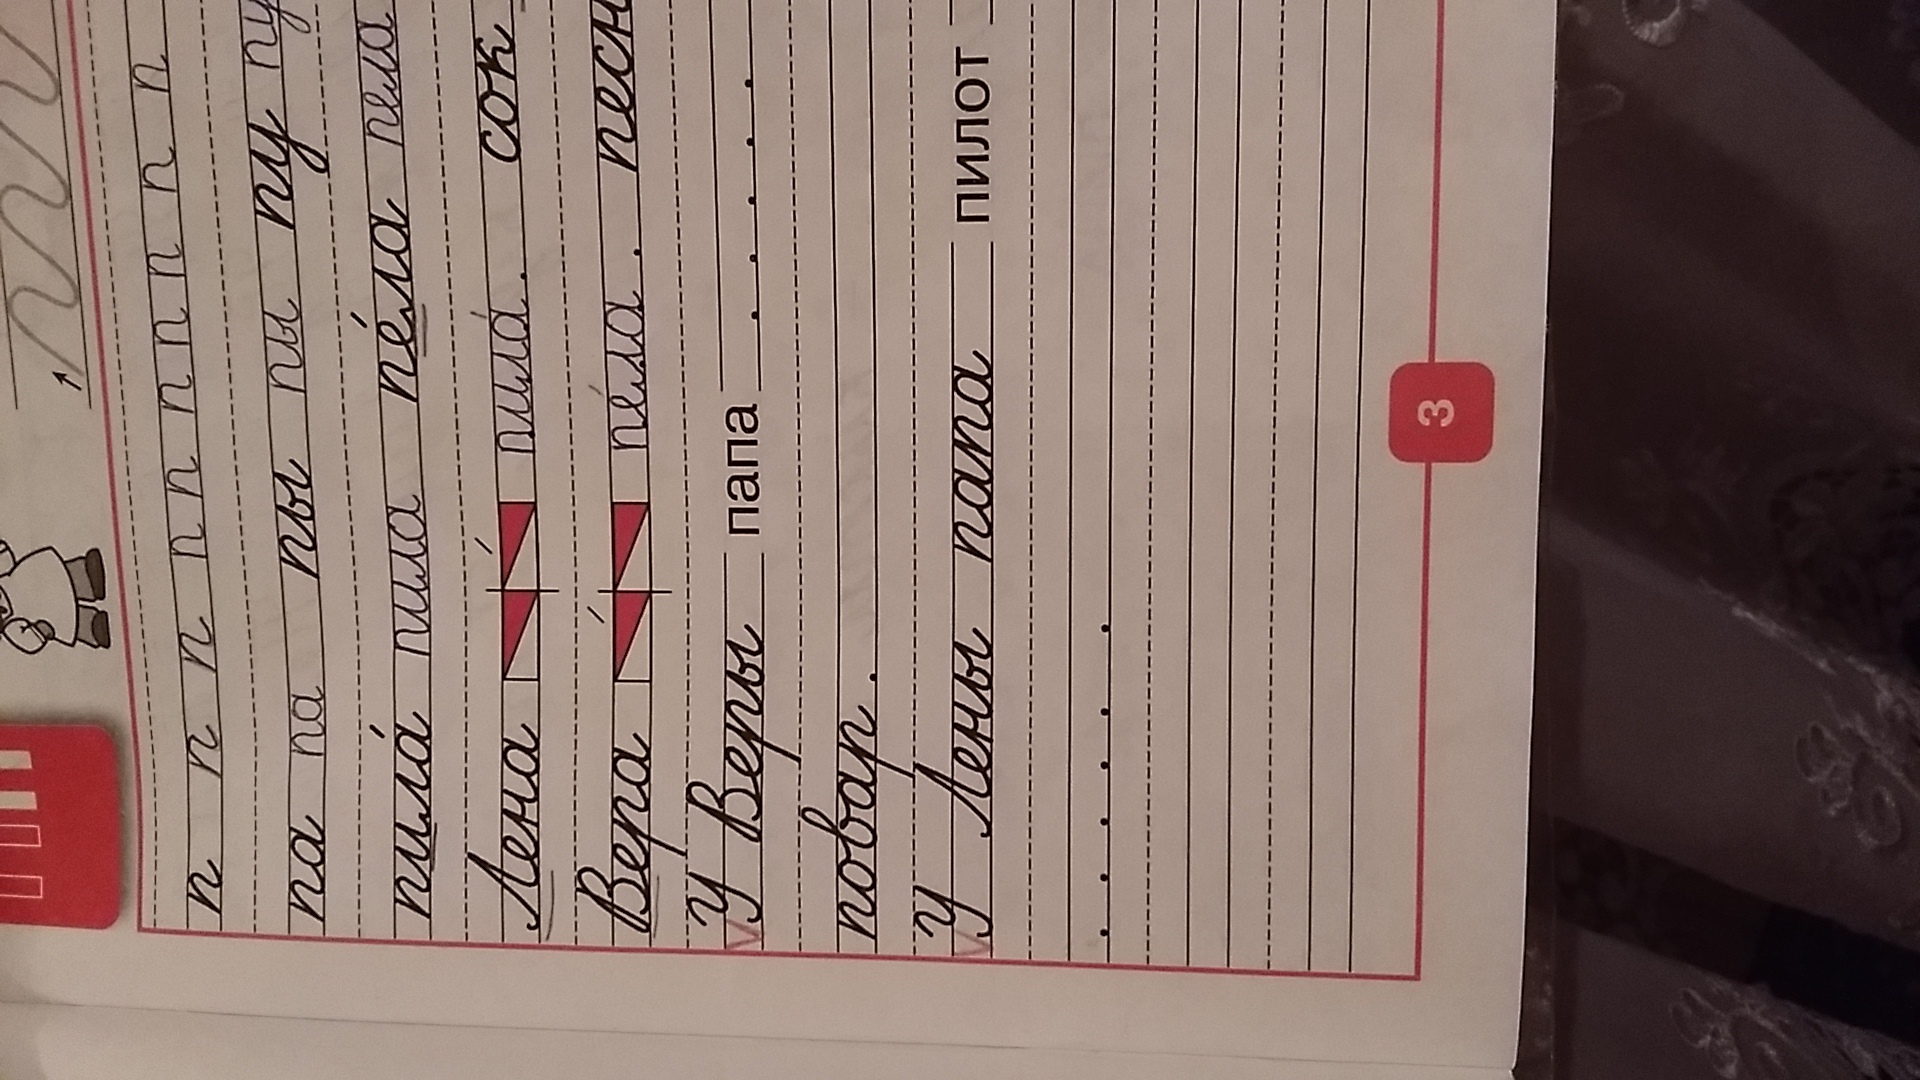 п п п п п п п п п п п
па па пы пы пу пу
пила́ пила пе́ла пела
Лена пила́. сок
Вера пе́ла. песн
У Веры папа . . . . .
повар.
У Лены папа пилот
. . . . . .
3